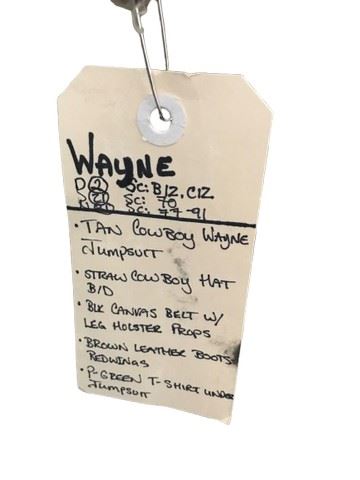 WAYNE
D② Sc: B12, C12
D㉑ Sc: 70
Sc: 77-91
• TAN COWBOY WAYNE
JUMPSUIT
• STRAW COWBOY HAT
B/D
• BLK CANVAS BELT W/
LEG HOLSTER PROPS
• BROWN LEATHER BOOTS
REDWINGS
• P-GREEN T-SHIRT UNDER
JUMPSUIT